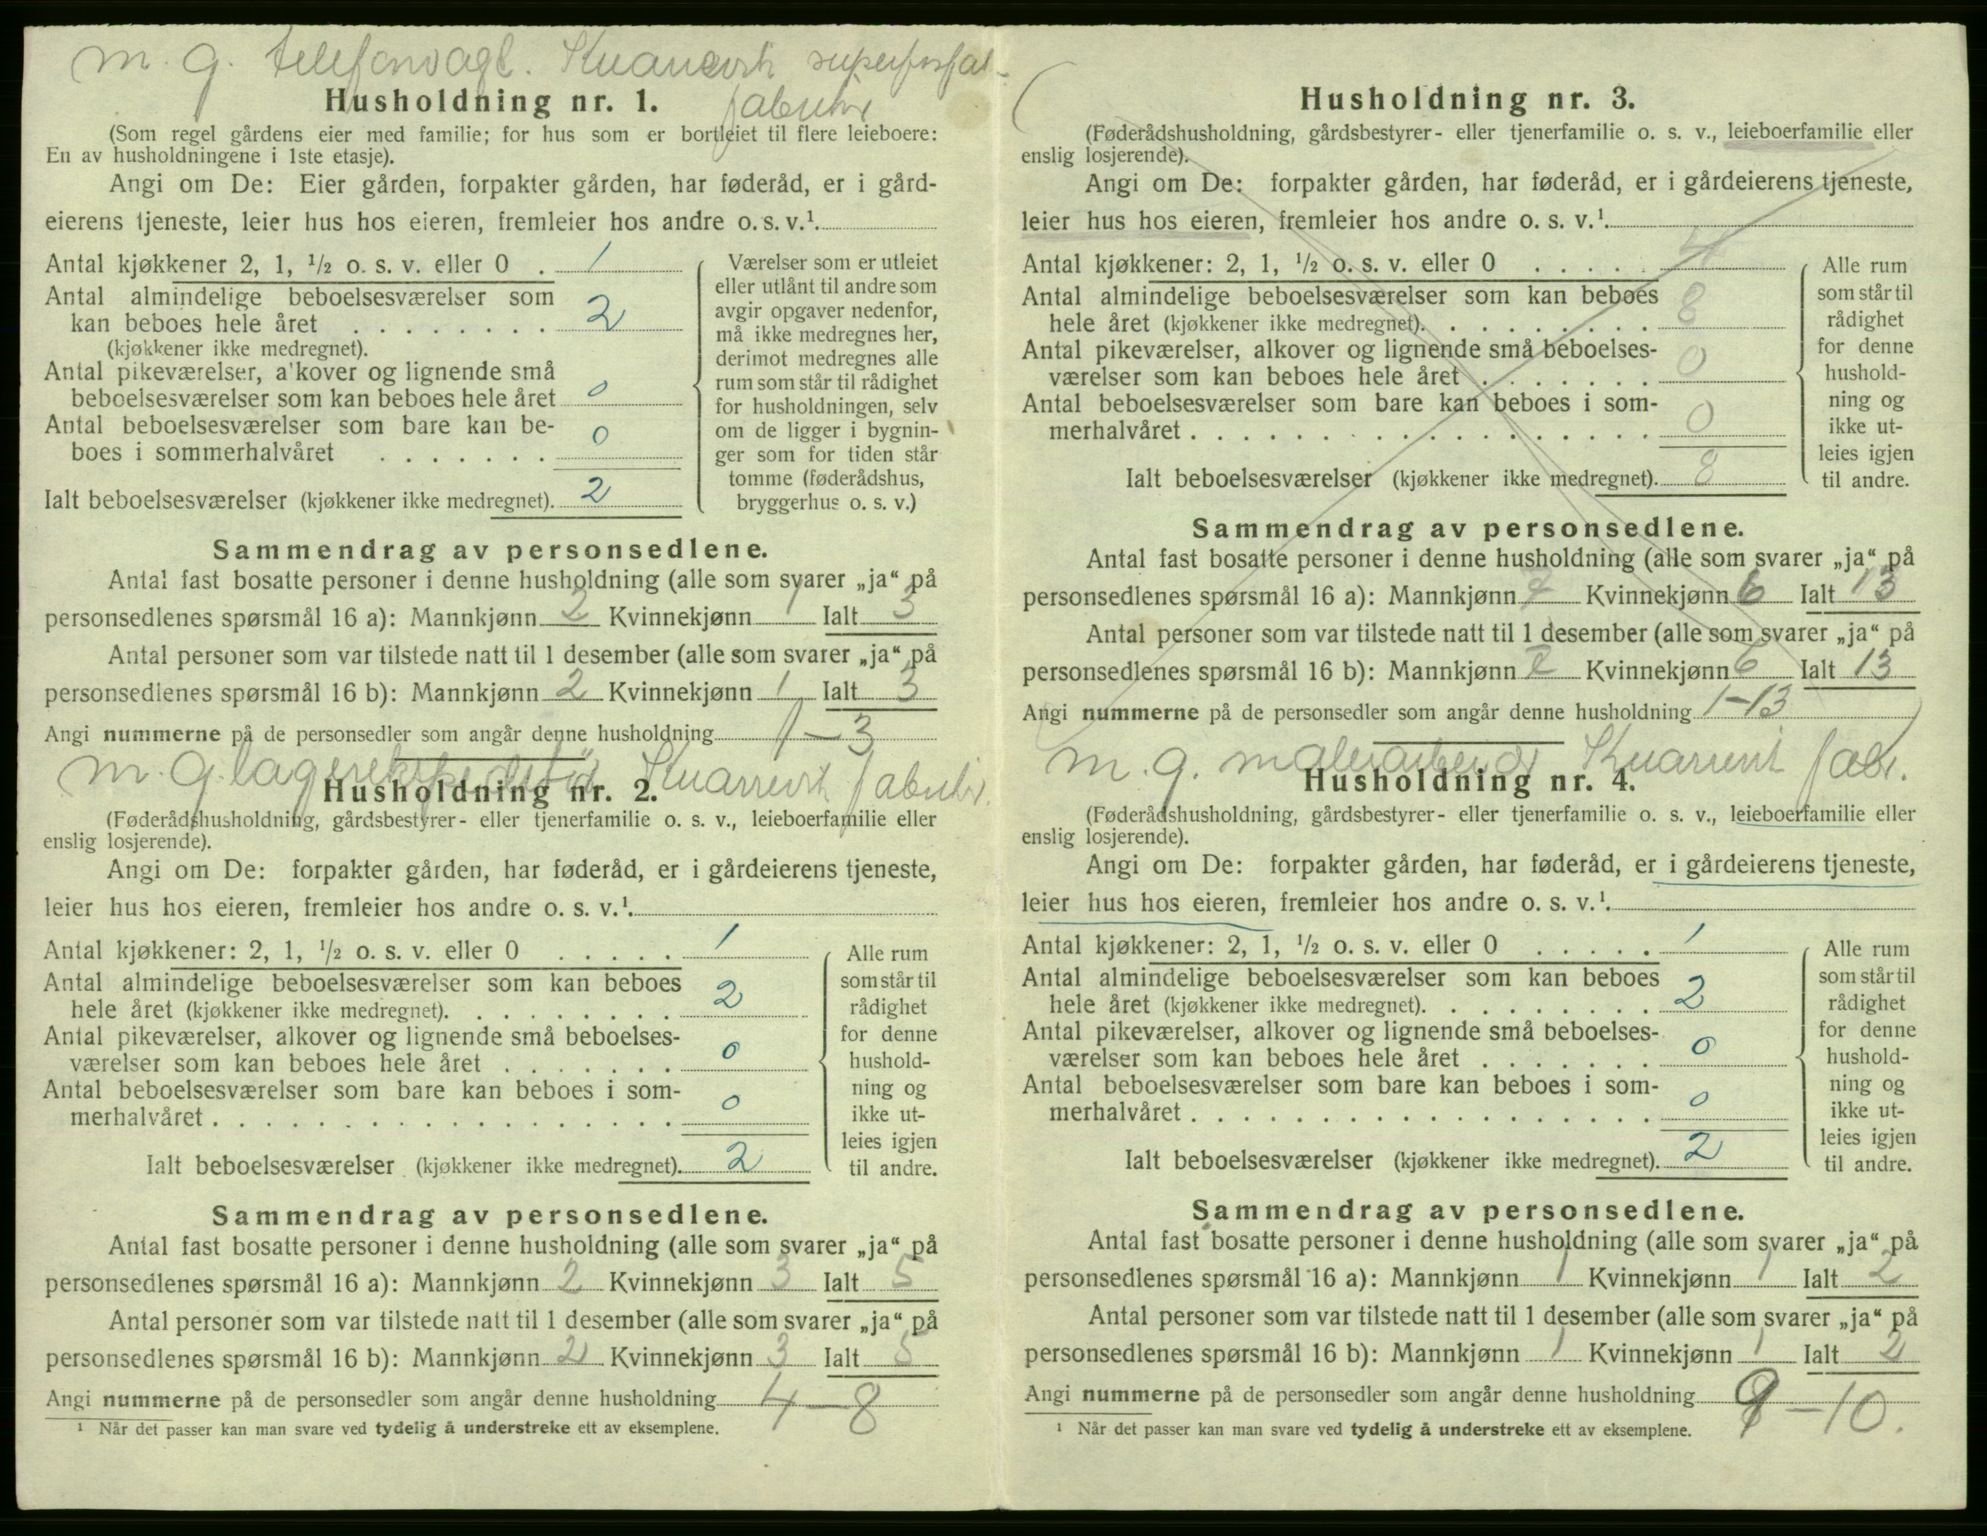 m. g. telefonvagt. superfosfat-
Husholdning nr. 1.
(Som regel gårdens eier med familie; for hus som er bortleiet til flere leieboere:
En av husholdningene i 1ste etasje).
Angi om De: Eier gården, forpakter gården, har føderåd, er i gård-
eierens tjeneste, leier hus hos eieren, fremleier hos andre o. s. v.¹
Antal kjøkkener 2, 1, ½ o. s. v. eller 0 . 1
Antal almindelige beboelsesværelser som
kan beboes hele året . . . . . . . . 2
(kjøkkener ikke medregnet).
Antal pikeværelser, a'kover og lignende små
beboelsesværelser som kan beboes hele året 0
Antal beboelsesværelser som bare kan be-
boes i sommerhalvåret . . . . . . . 0
Ialt beboelsesværelser (kjøkkener ikke medregnet). 2
Værelser som er utleiet
eller utlånt til andre som
avgir opgaver nedenfor,
må ikke medregnes her,
derimot medregnes alle
rum som står til rådighet
for husholdningen, selv
om de ligger i bygnin-
ger som for tiden står
tomme (føderådshus,
bryggerhus o. s. v.)
Sammendrag av personsedlene.
Antal fast bosatte personer i denne husholdning (alle som svarer „ja“ på
personsedlenes spørsmål 16 a): Mannkjønn 2 Kvinnekjønn 1 Ialt 3
Antal personer som var tilstede natt til 1 desember (alle som svarer „ja“ på
personsedlenes spørsmål 16 b): Mannkjønn 2 Kvinnekjønn 1 Ialt 3
Angi nummerne på de personsedler som angår denne husholdning 1–3
m. g. lagerekspeditør
Husholdning nr. 2.
(Føderådshusholdning, gårdsbestyrer- eller tjenerfamilie o. s. v., leieboerfamilie eller
enslig losjerende).
Angi om De: forpakter gården, har føderåd, er i gårdeierens tjeneste,
leier hus hos eieren, fremleier hos andre o. s. v.¹
Antal kjøkkener: 2, 1, ½ o. s. v. eller 0 . . . . . 1
Antal almindelige beboelsesværelser som kan beboes
hele året (kjøkkener ikke medregnet). . . . . . . . . 2
Antal pikeværelser, alkover og lignende små beboelses-
værelser som kan beboes hele året . . . . . . . 0
Antal beboelsesværelser som bare kan beboes i som-
merhalvåret . . . . . . . . . . . . . . . . . . 0
Ialt beboelsesværelser (kjøkkener ikke medregnet). 2
Alle rum
som står til
rådighet
for denne
hushold-
ning og
ikke ut-
leies igjen
til andre.
Sammendrag av personsedlene.
Antal fast bosatte personer i denne husholdning (alle som svarer „ja“ på
personsedlenes spørsmål 16 a): Mannkjønn 2 Kvinnekjønn 3 Ialt 5
Antal personer som var tilstede natt til 1 desember (alle som svarer „ja“ på
personsedlenes spørsmål 16 b): Mannkjønn 2 Kvinnekjønn 3 Ialt 5
Angi nummerne på de personsedler som angår denne husholdning 4–8
¹ Når det passer kan man svare ved tydelig å understreke ett av eksemplene.
Husholdning nr. 3.
(Føderådshusholdning, gårdsbestyrer- eller tjenerfamilie o. s. v., leieboerfamilie eller
enslig losjerende).
Angi om De: forpakter gården, har føderåd, er i gårdeierens tjeneste,
leier hus hos eieren, fremleier hos andre o. s. v.¹
Antal kjøkkener: 2, 1, ½ o. s. v. eller 0 . . . . . 4
Antal almindelige beboelsesværelser som kan beboes
hele året (kjøkkener ikke medregnet). . . . . . . . . 8
Antal pikeværelser, alkover og lignende små beboelses-
værelser som kan beboes hele året . . . . . . . 0
Antal beboelsesværelser som bare kan beboes i som-
merhalvåret . . . . . . . . . . . . . . . . . . 0
Ialt beboelsesværelser (kjøkkener ikke medregnet). 8
Alle rum
som står til
rådighet
for denne
hushold-
ning og
ikke ut-
leies igjen
til andre.
Sammendrag av personsedlene.
Antal fast bosatte personer i denne husholdning (alle som svarer „ja“ på
personsedlenes spørsmål 16 a): Mannkjønn 7 Kvinnekjønn 6 Ialt 13
Antal personer som var tilstede natt til 1 desember (alle som svarer „ja“ på
personsedlenes spørsmål 16 b): Mannkjønn 7 Kvinnekjønn 6 Ialt 13
Angi nummerne på de personsedler som angår denne husholdning 1–13
m. g. malerarbeider fabr.
Husholdning nr. 4.
(Føderådshusholdning, gårdsbestyrer- eller tjenerfamilie o. s. v., leieboerfamilie eller
enslig losjerende).
Angi om De: forpakter gården, har føderåd, er i gårdeierens tjeneste,
leier hus hos eieren, fremleier hos andre o. s. v.¹
Antal kjøkkener: 2, 1, ½ o. s. v. eller 0 . . . . . 1
Antal almindelige beboelsesværelser som kan beboes
hele året (kjøkkener ikke medregnet). . . . . . . . . 2
Antal pikeværelser, alkover og lignende små beboelses-
værelser som kan beboes hele året . . . . . . . 0
Antal beboelsesværelser som bare kan beboes i som-
merhalvåret . . . . . . . . . . . . . . . . . . 0
Ialt beboelsesværelser (kjøkkener ikke medregnet). 2
Alle rum
som står til
rådighet
for denne
hushold-
ning og
ikke ut-
leies igjen
til andre.
Sammendrag av personsedlene.
Antal fast bosatte personer i denne husholdning (alle som svarer „ja“ på
personsedlenes spørsmål 16 a): Mannkjønn 1 Kvinnekjønn 1 Ialt 2
Antal personer som var tilstede natt til 1 desember (alle som svarer „ja“ på
personsedlenes spørsmål 16 b): Mannkjønn 1 Kvinnekjønn 1 Ialt 2
Angi nummerne på de personsedler som angår denne husholdning 9–10.
¹ Når det passer kan man svare ved tydelig å understreke ett av eksemplene.